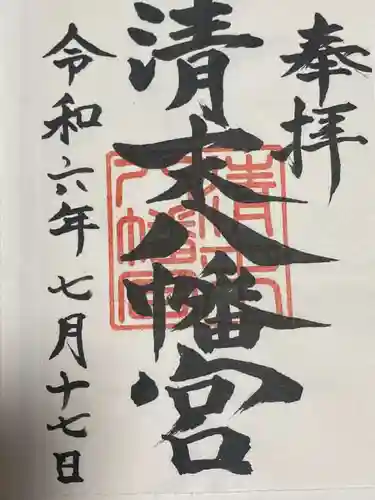 奉拝
清末八幡宮
令和六年七月十七日
清末
八幡宮